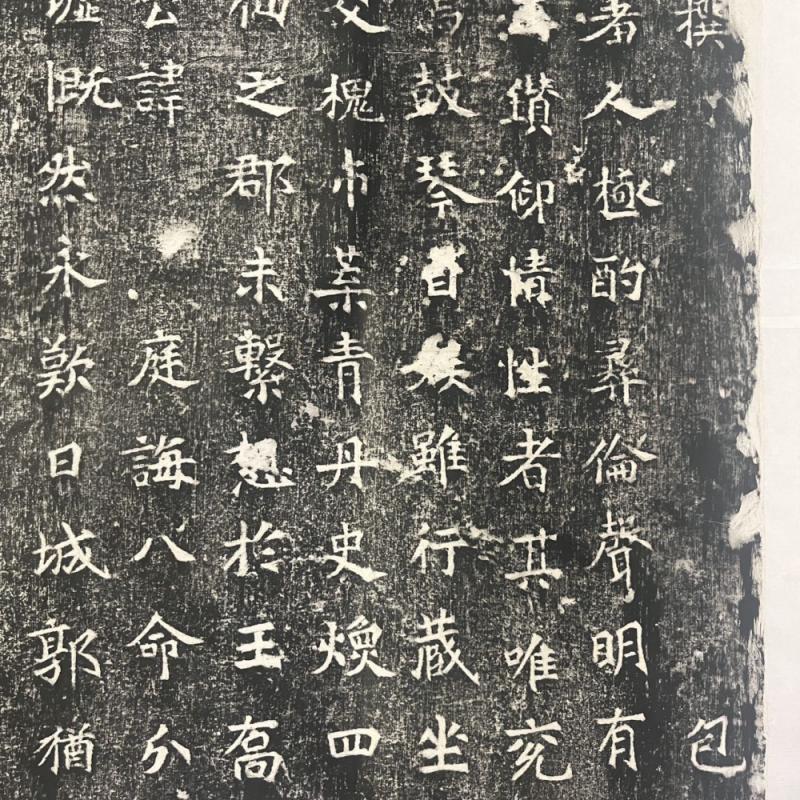 撰 包
者人極酌彝倫聲明有
鑽仰情性者其唯兖
鼓琴日族雖行藏坐
文槐市葉青丹史煥四
仙之郡未繫想於王喬
公諱 庭誨八命分
墟慨然永歎曰城郭猶